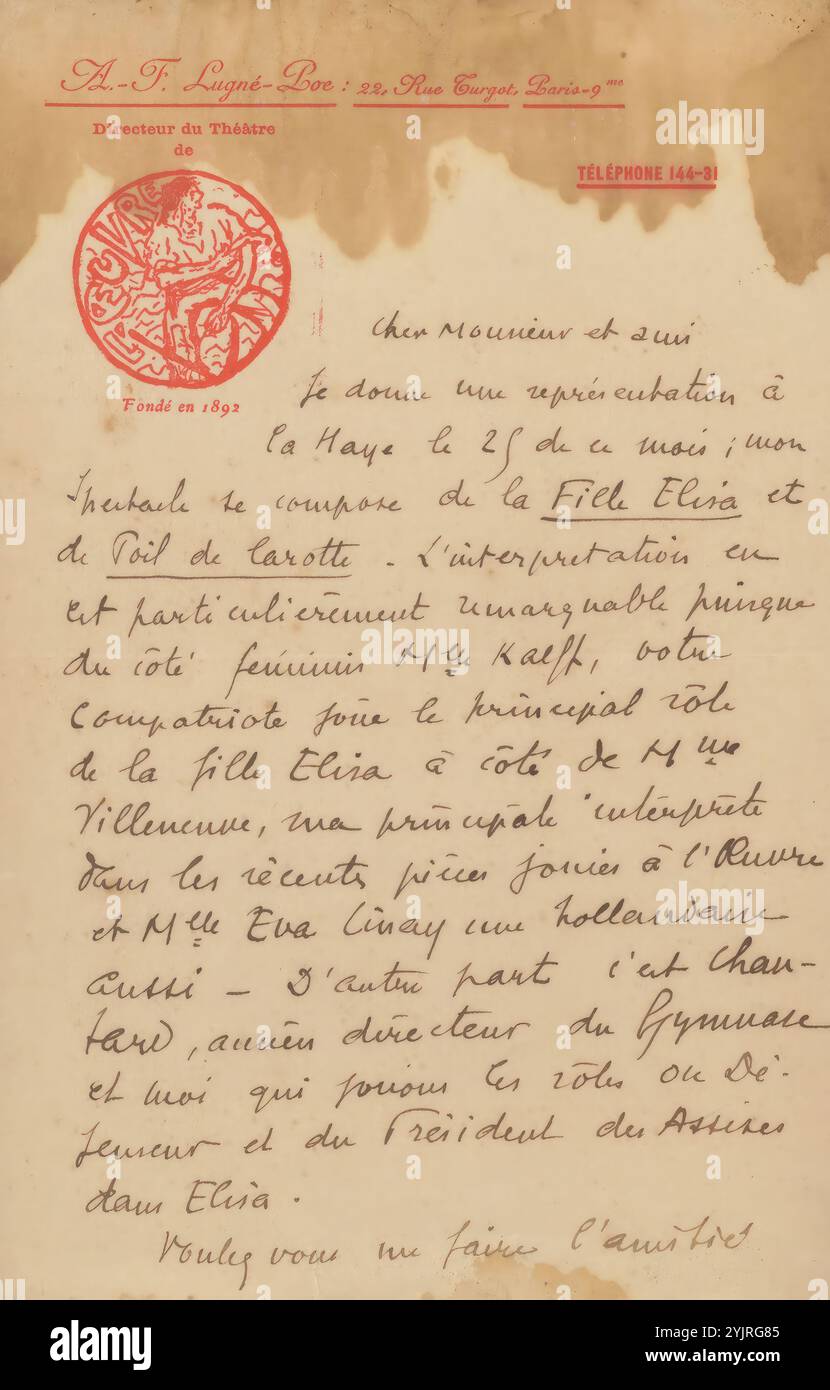 A.-F. Lugné-Poe : 22, Rue Turgot, Paris-9me
Directeur du Théâtre
de
TÉLÉPHONE 144-31
L'ŒUVRE
Fondé en 1892
Cher Monsieur et ami
Je donne une représentation à
la Haye le 25 de ce mois ; mon
Spectacle se compose de la Fille Elisa et
de Poil de Carotte - L'interprétation en
est particulièrement remarquable puisque
du côté féminin Mlle Kalff, votre
Compatriote joue le principal rôle
de la fille Elisa à côté de Mme
Villeneuve, ma principale interprète
dans les récentes pièces jouées à l'Œuvre
et Mlle Eva une hollandaise
aussi - D'autre part c'est Chau-
tard, ancien directeur du Gymnase
et moi qui jouons les rôles du Dé-
fenseur et du Président des Assises
dans Elisa.
Voulez vous me faire l'amitié
alamy
Image ID: 2YJRG85
www.alamy.com